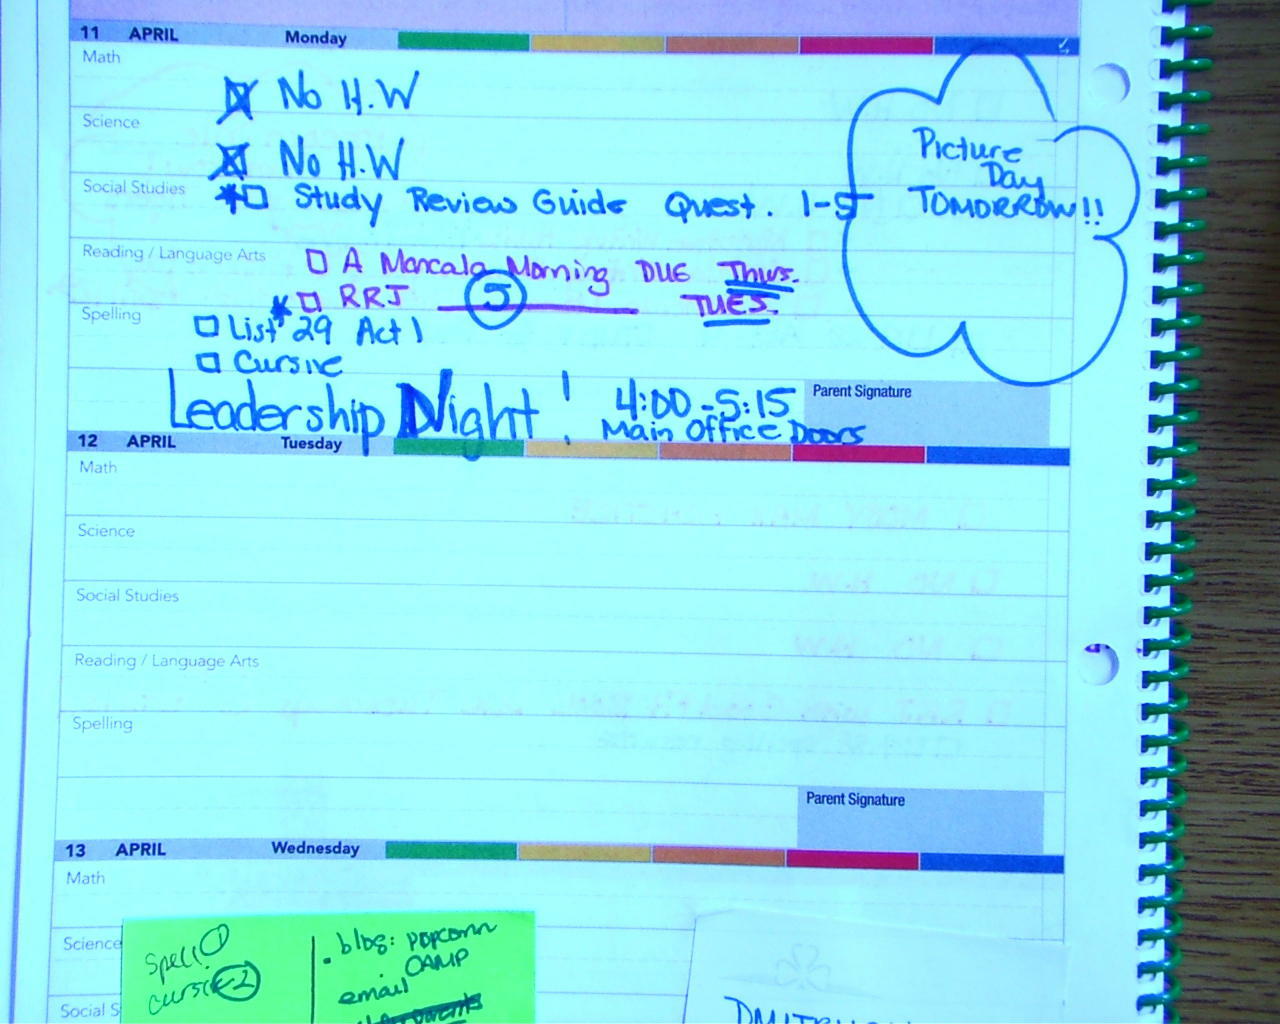 11 APRIL Monday
Math
No H.W
Science
No H.W
Social Studies
Study Review Guide Quest. 1-5
Picture
Day
TOMORROW!!
Reading / Language Arts
A Mancala Morning DUE Thurs.
RRJ J TUES.
Spelling
List 29 Act 1
Cursive
Leadership Night! 4:00-5:15
Main Office Doors
Parent Signature
12 APRIL Tuesday
Math
Science
Social Studies
Reading / Language Arts
Spelling
Parent Signature
13 APRIL Wednesday
Math
Science
Social S
Spell 1
cursive 2
blog: popcorn
OAMP
email